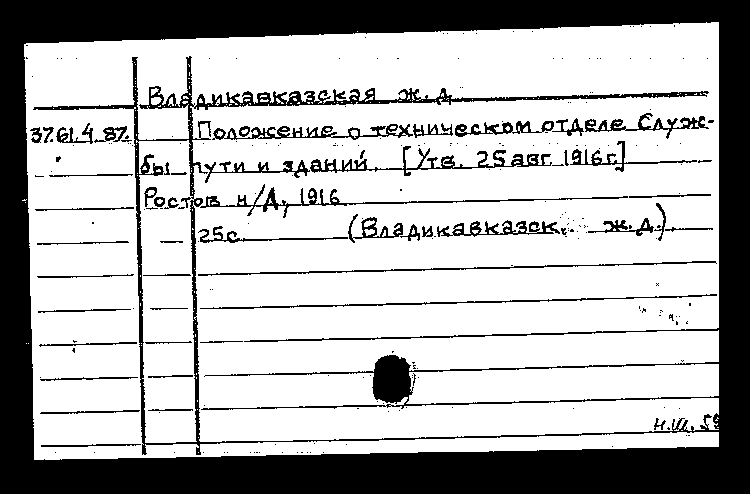 Владикавказская ж. д.
37.61.4.87. Положение о техническом отделе Служ-
бы пути и зданий. [Утв. 25 авг. 1916 г.]
Ростов н/Д., 1916
25 с. (Владикавказск. ж. д.).